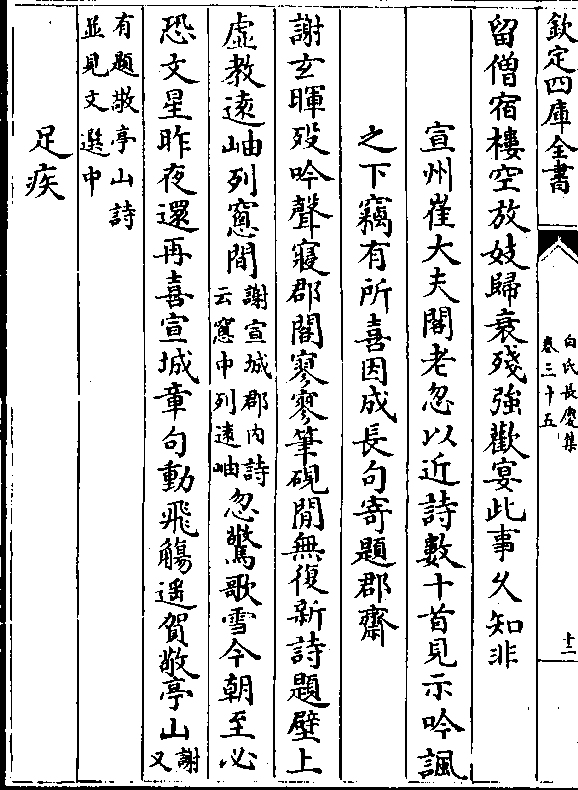 欽定四庫全書
白氏長慶集
卷三十五
十二
留僧宿樓空放妓歸衰殘強歡宴此事久知非
宣州崔大夫閣老忽以近詩數十首見示吟諷
之下竊有所喜因成長句寄題郡齋
謝玄暉歿吟聲寢郡閣寥寥筆硯閒無復新詩題壁上
虛教遠岫列窻間
謝宣城郡内詩
云窻中列遠岫
忽驚歌雪今朝至必
恐文星昨夜還再喜宣城章句動飛觴遥賀敬亭山
謝
又
有題敬亭山詩
並見文選中
足疾